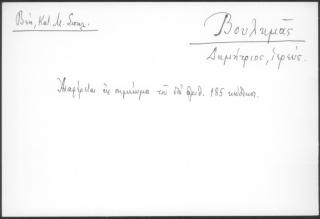 Βέη, Κατ. Μ. Σουμ.
Βουλημᾶς
Δημήτριος, ἱερεύς.
Ἀναφέρεται εἰς σημείωμα τοῦ ὑπ' ἀριθ. 185 κώδικος.